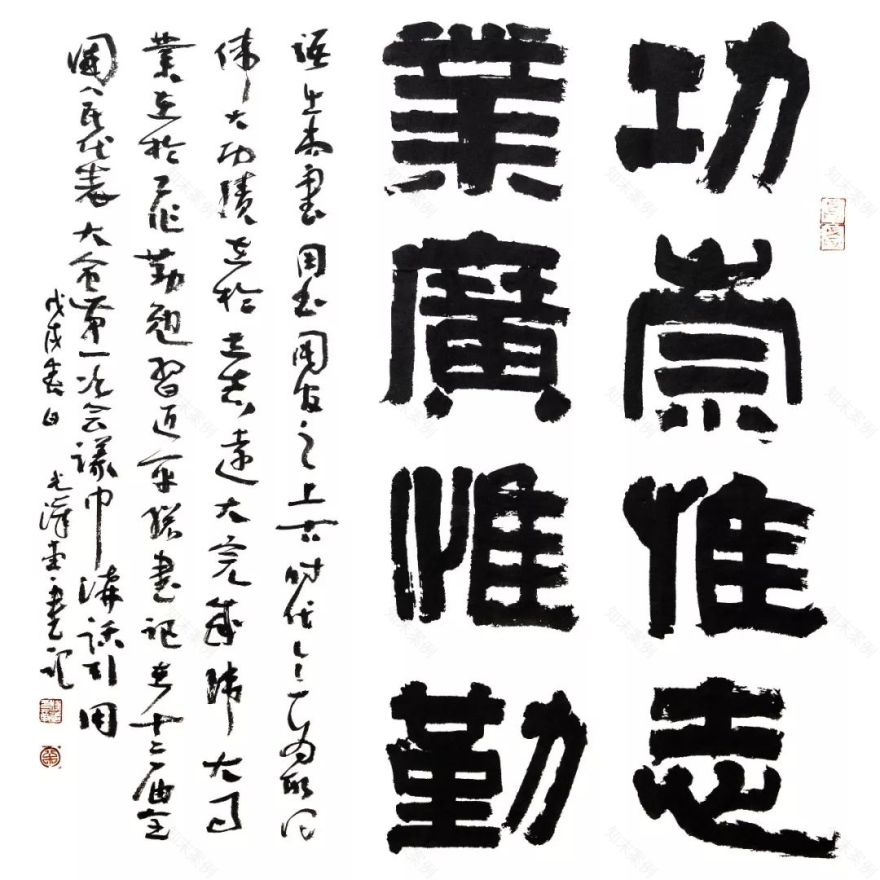 功崇惟志
業廣惟勤
語出尚書周書周官之上古時代为取得
偉大功績在於立志遠大完成偉大事
業在於工作勤勉習近平總書記在十三届全
國人民代表大會第一次会議中講話引用
戊戌春日
知末案例